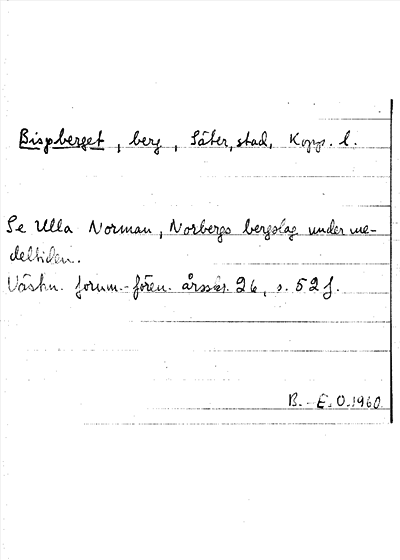 Bispberget, berg, Säter, stad, Kopp. l.
Se Ulla Norman, Norbergs bergslag under me-
deltiden.
Västm. fornm.-fören. årsskr. 26, s. 52 f.
B.-E.O. 1960